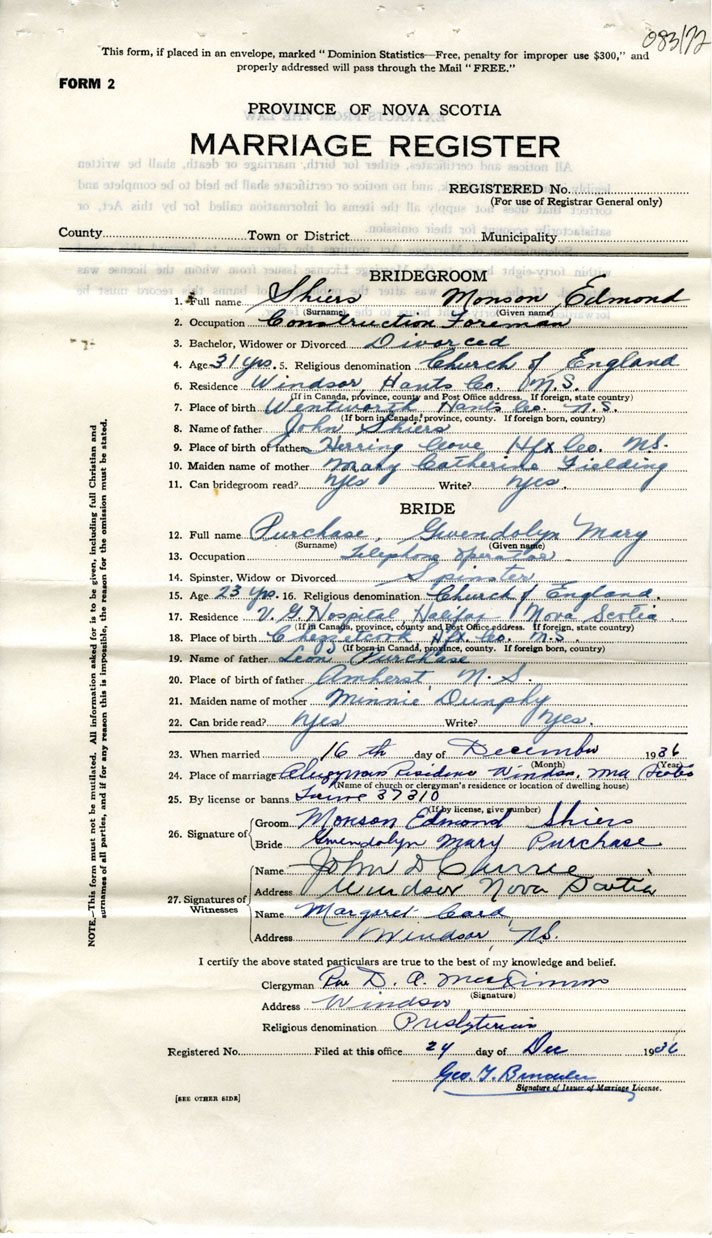 083172
This form, if placed in an envelope, marked "Dominion Statistics—Free, penalty for improper use $300," and
properly addressed will pass through the Mail "FREE."
FORM 2
PROVINCE OF NOVA SCOTIA
MARRIAGE REGISTER
REGISTERED No.
(For use of Registrar General only)
County Town or District Municipality
BRIDEGROOM
1. Full name Shiers Monson Edmond
(Surname) (Given name)
2. Occupation Construction Foreman
3. Bachelor, Widower or Divorced Divorced
4. Age 31 yrs. 5. Religious denomination Church of England
6. Residence Windsor, Hants Co. N.S.
(If in Canada, province, county and Post Office address. If foreign, state country)
7. Place of birth Wentworth Hants Co. N.S.
(If born in Canada, province, county. If foreign born, country)
8. Name of father John Shiers
9. Place of birth of father Herring Cove Hfx Co. N.S.
10. Maiden name of mother Mary Catherine Fielding
11. Can bridegroom read? yes Write? yes.
BRIDE
12. Full name Purchase, Gwendolyn Mary
(Surname) (Given name)
13. Occupation Telephone Operator
14. Spinster, Widow or Divorced Spinster
15. Age 23 yrs. 16. Religious denomination Church of England.
17. Residence V. G Hospital Halifax Nova Scotia
(If in Canada, province, county and Post Office address. If foreign, state country)
18. Place of birth Chezzetcook Hfx Co. N.S.
(If born in Canada, province, county. If foreign born, country)
19. Name of father Leon Purchase
20. Place of birth of father Amherst, N.S.
21. Maiden name of mother Minnie Dunphy
22. Can bride read? yes Write? yes.
23. When married 16 th day of December 1936
(Month) (Year)
24. Place of marriage Clergyman's Residence Windsor, Nova Scotia
(Name of church or clergyman's residence or location of dwelling house)
25. By license or banns 37310
(If by license, give number)
26. Signature of Groom Monson Edmond Shiers
Bride Gwendolyn Mary Purchase
27. Signatures of Witnesses Name John D Currie
Address Windsor Nova Scotia
Name Margaret Card
Address Windsor, N.S.
I certify the above stated particulars are true to the best of my knowledge and belief.
Clergyman Rev D. A. MacKinnon
(Signature)
Address Windsor
Religious denomination Presbyterian
Registered No. Filed at this office 24 day of Dec 1936
Geo. T.
Signature of Issuer of Marriage License.
[SEE OTHER SIDE]
NOTE.—This form must not be mutilated. All information asked for is to be given, including full Christian and
surnames of all parties, and if for any reason this is impossible, the reason for the omission must be stated.